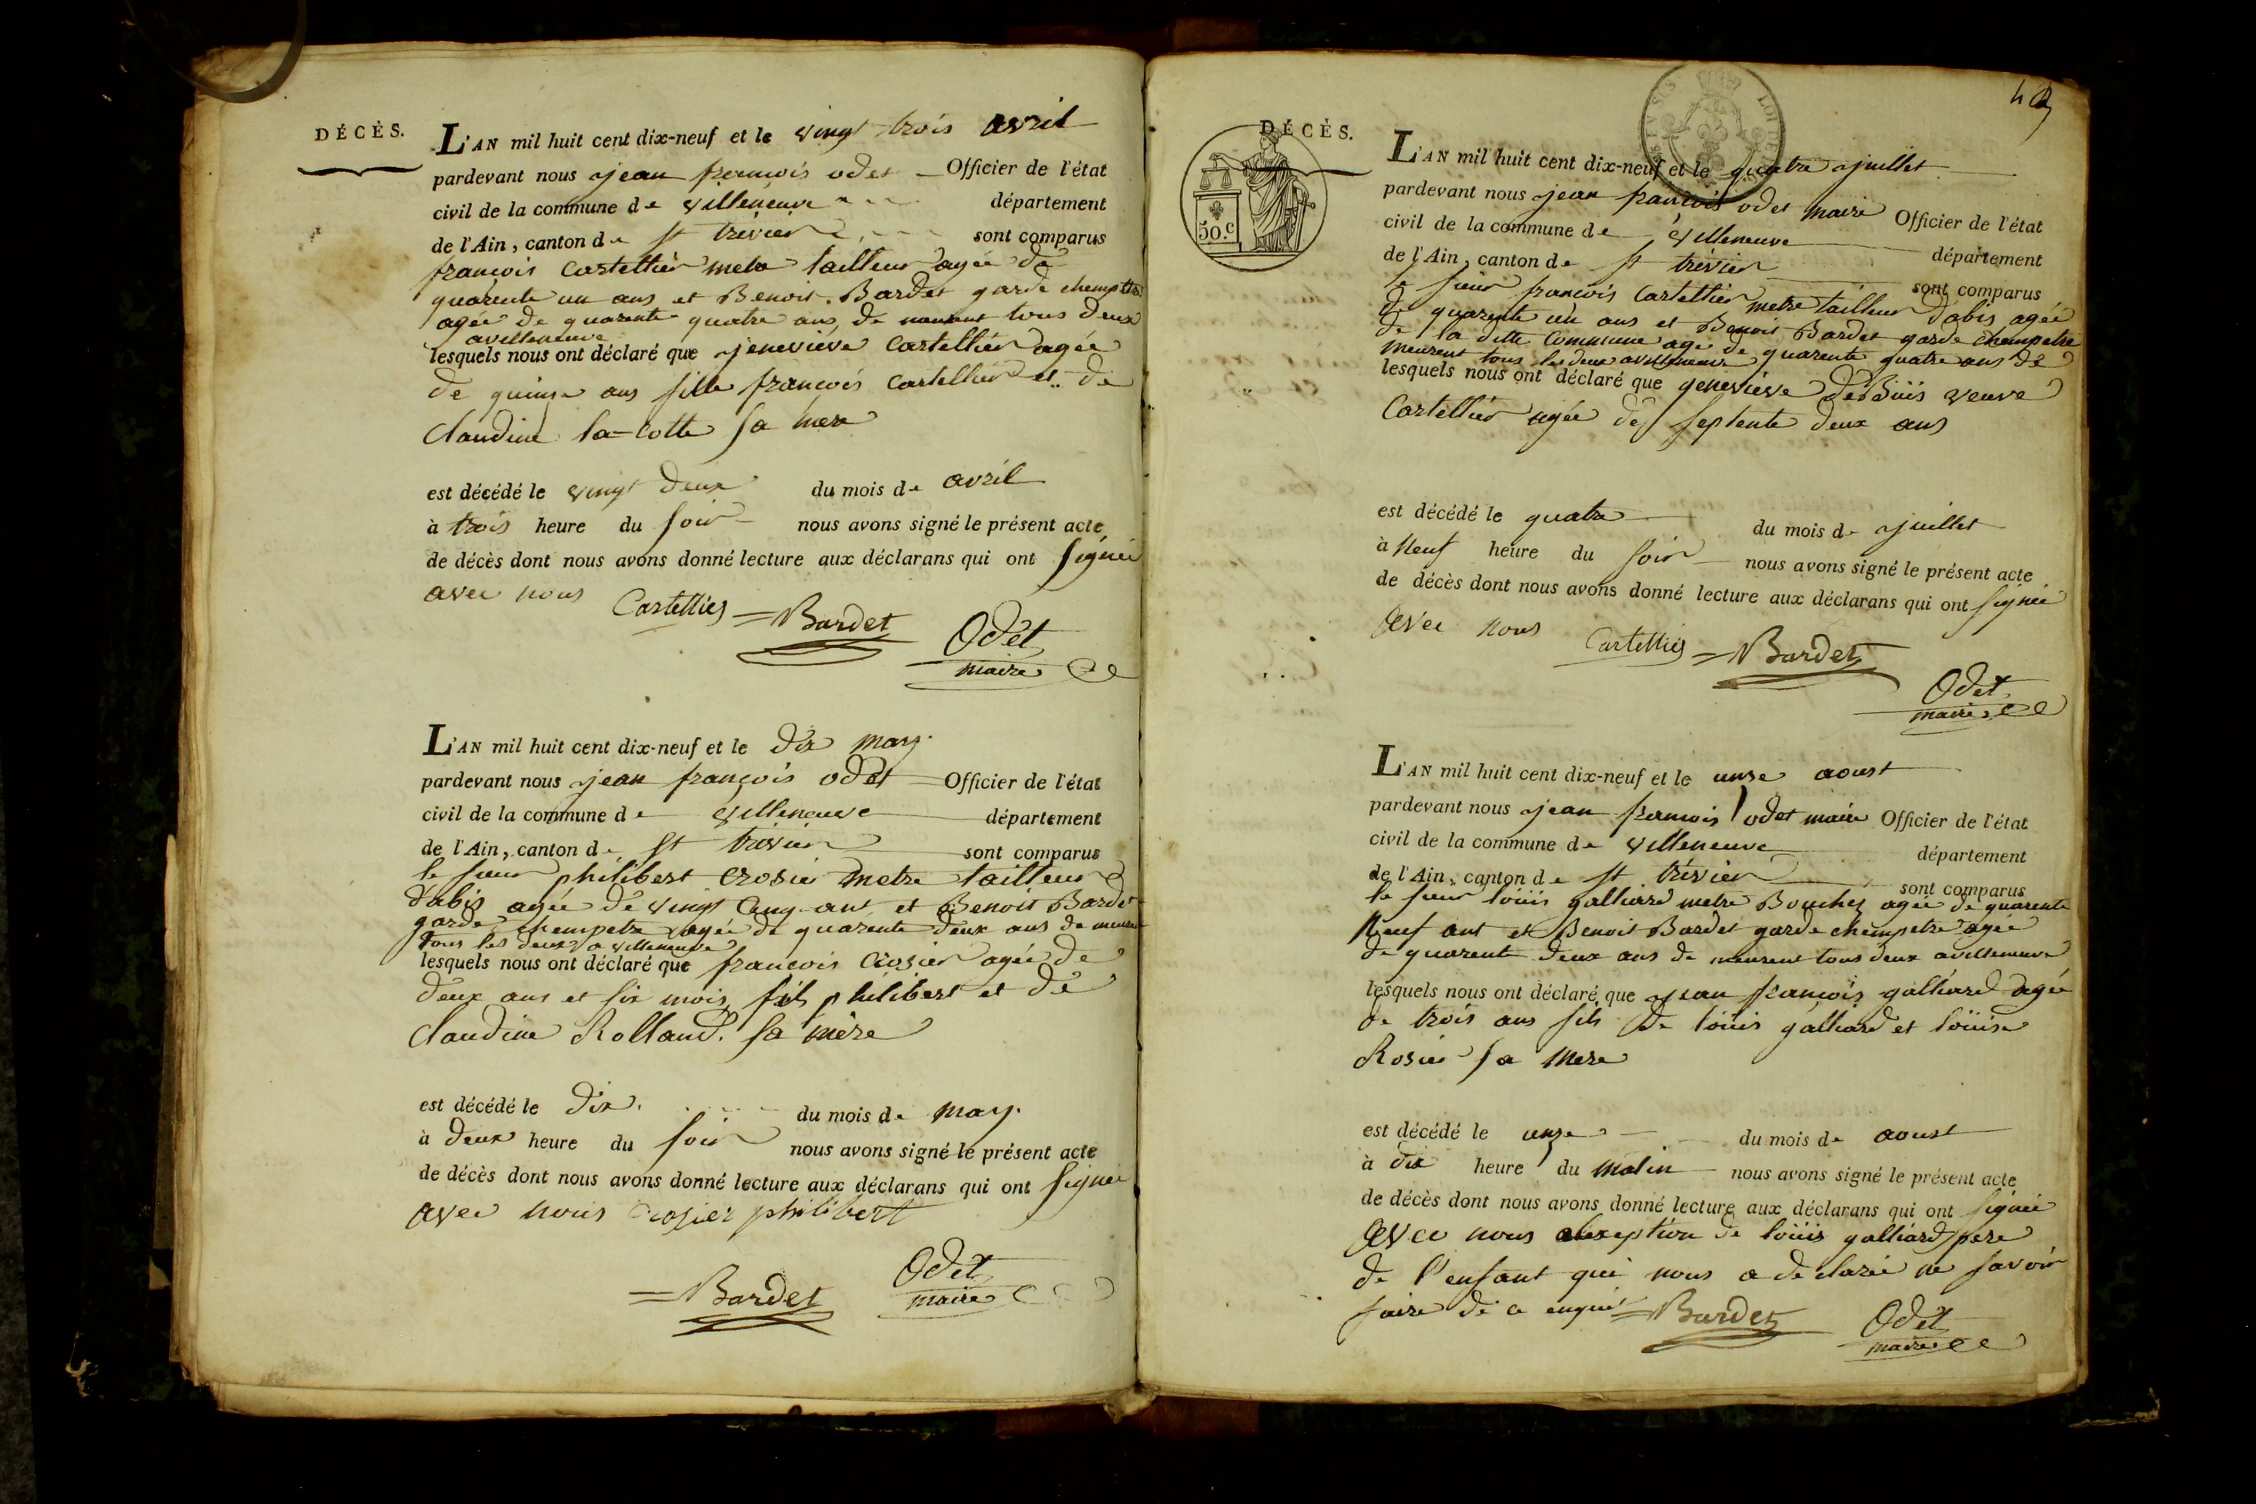 DÉCÈS.
L'AN mil huit cent dix-neuf et le vingt trois avril
pardevant nous jean francois odet Officier de l'état
civil de la commune de villeneuve département
de l'Ain, canton de st trivier sont comparus
françois Castellier metre tailleur agée de
quarente un ans et Benoit Bardet garde chempetre
agée de quarente quatre ans de meurent tous deux
avilleneuve
lesquels nous ont déclaré que jenevieve Castellier agée
de quinze ans fille francois castellier et de
claudine la-cotte sa mere
est décédé le vingt deux du mois de avril
à trois heure du soir nous avons signé le présent acte
de décès dont nous avons donné lecture aux déclarans qui ont signée
avec nous Castellier Bardet Odet
maire
L'AN mil huit cent dix-neuf et le dix may
pardevant nous jean françois odet Officier de l'état
civil de la commune de villeneuve département
de l'Ain, canton de st trivier sont comparus
le sieur philibert Crosier metre tailleur
d'abis agée de vingt cinq ant et Benoit Bardet
garde chempetre agée de quarente deux ans de meurent
tous les deux a villeneuve
lesquels nous ont déclaré que francois Crosier agée de
deux ans et six mois fils philibert et de
Claudine Rolland sa mère
est décédé le dix du mois de may
à deux heure du soir nous avons signé le présent acte
de décès dont nous avons donné lecture aux déclarans qui ont signee
avec nous crosier philibert
Bardet Odet
maire
DÉCÈS.
50.c
L'AN mil huit cent dix-neuf et le quatre juillet
pardevant nous jean francois odet maire Officier de l'état
civil de la commune de villeneuve département
de l'Ain, canton de st trévier sont comparus
le sieur francois Castellier metre tailleur d'abis agée
de quarente un ans et Benoit Bardet garde chempetre
de la ditte Commune age de quarente quatre ans de
meurent tous les deux avilleneuve
lesquels nous ont déclaré que genevieve deBuis veuve
Castellier agée de septente deux ans
est décédé le quatre du mois de juillet
à Neuf heure du soir nous avons signé le présent acte
de décès dont nous avons donné lecture aux déclarans qui ont signée
avec nous Castellier Bardet
Odet
maire
L'AN mil huit cent dix-neuf et le unze aoust
pardevant nous jean francois odet maire Officier de l'état
civil de la commune de villeneuve département
de l'Ain, canton de st trévier sont comparus
le sieur loüis galliard metre Boucher agée de quarente
Neuf ant et Benoit Bardet garde chempetre agée
de quarente deux ans de meurent tous deux avilleneuve
lesquels nous ont déclaré que jean francois galliard agée
de trois ans fils de loüis galliard et loüise
Rosier sa mere
est décédé le unze du mois de aoust
à dix heure du matin nous avons signé le présent acte
de décès dont nous avons donné lecture aux déclarans qui ont signée
avec nous alexeption de loüis galliard pere
de l'enfant qui nous a declarée ne savoir
faire de ce enquis Bardet Odet
maire